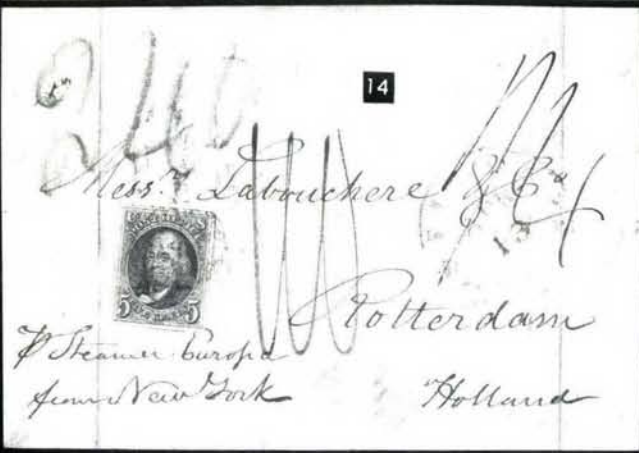 240
14
Messrs Labouchere & Co
POST OFFICE
5 5
Rotterdam
p Steamer Europa
from New York
Holland